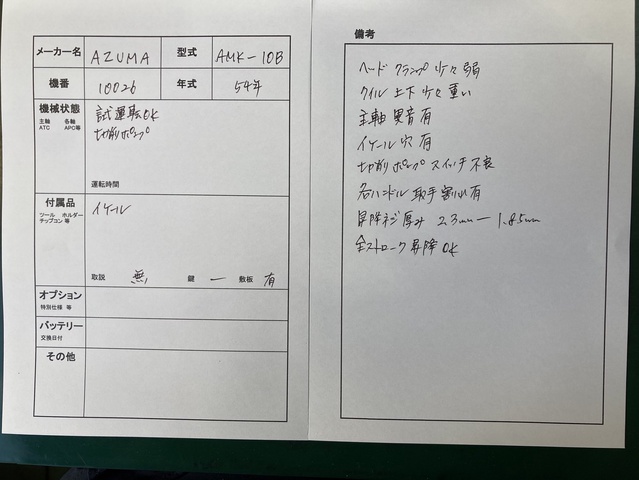 メーカー名 AZUMA 型式 AMK-10B
機番 10026 年式 54年
機械状態 試運転OK
主軸 各軸 切削ポンプ
ATC APC等
運転時間
付属品 イケール
ツール ホルダー
チップコン 等
取説 無 鍵 ー 敷板 有
オプション
特別仕様 等
バッテリー
交換日付
その他
備考
ヘッド クランプ 少々 弱
クイル 上下 少々 重い
主軸 異音 有
イケール 穴 有
切削 ポンプ スイッチ 不良
各ハンドル 取手 割れ 有
昇降ネジ厚み 2.3mm ー 1.85mm
全ストローク 昇降 OK